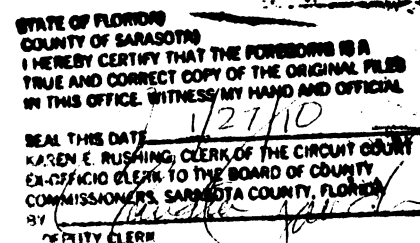 STATE OF FLORIDA)
COUNTY OF SARASOTA)
I HEREBY CERTIFY THAT THE FOREGOING IS A
TRUE AND CORRECT COPY OF THE ORIGINAL FILES
IN THIS OFFICE. WITNESS MY HAND AND OFFICIAL
SEAL THIS DATE 1/27/10
KAREN E. RUSHING, CLERK OF THE CIRCUIT COURT
EX-OFFICIO CLERK TO THE BOARD OF COUNTY
COMMISSIONERS, SARASOTA COUNTY, FLORIDA
BY
DEPUTY CLERK